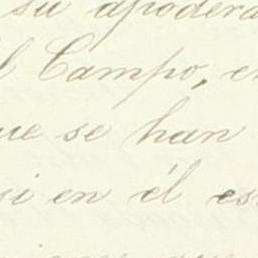 su apodera
l Campo, en
ue se han
si en él es